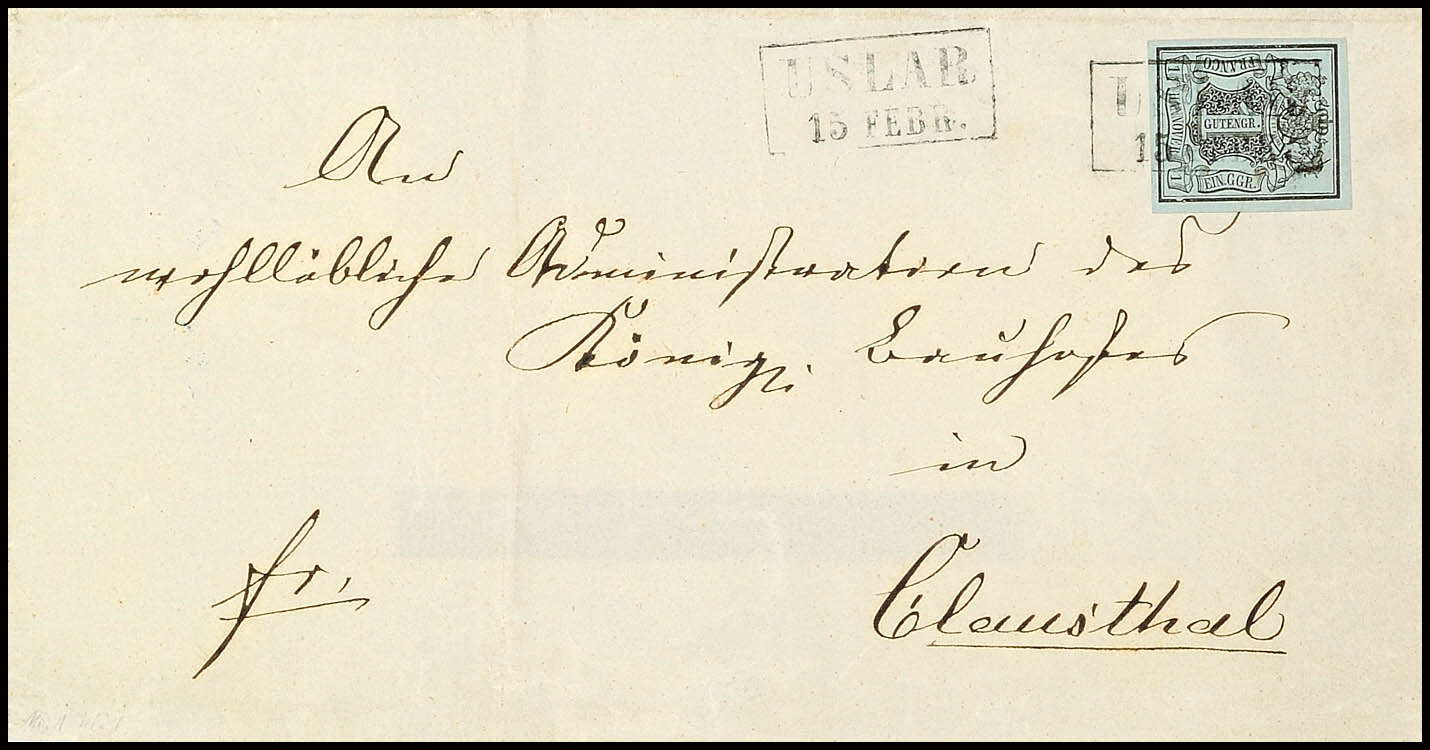 USLAR
15 FEBR.
U
15
FRANCO
HANNOVER
GUTENGR.
EIN.GGR.
I
I
An
wohllöbliche Administration des
Königl. Bauhofes
in
fr.
Clausthal